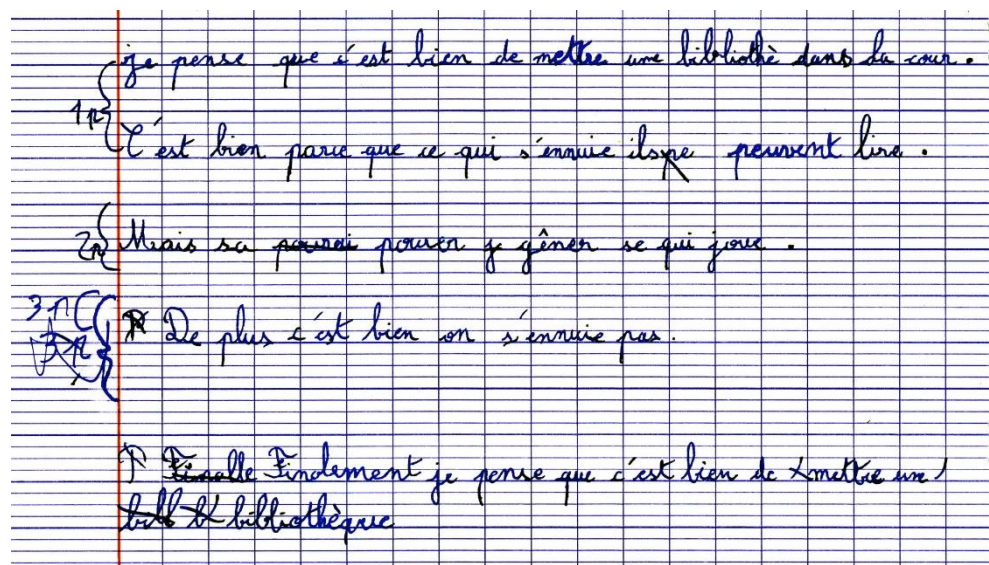 je pense que c'est bien de mettre une bibliothè dans la cour.
1p
C'est bien parce que ce qui s'ennuie ils peuvent lire.
2p Mais sa pourai pouver gêner se qui joue.
3p
De plus c'est bien on s'ennuie pas.
3p
Finalle Finalement je pense que c'est bien de mettre une
bibliothèque